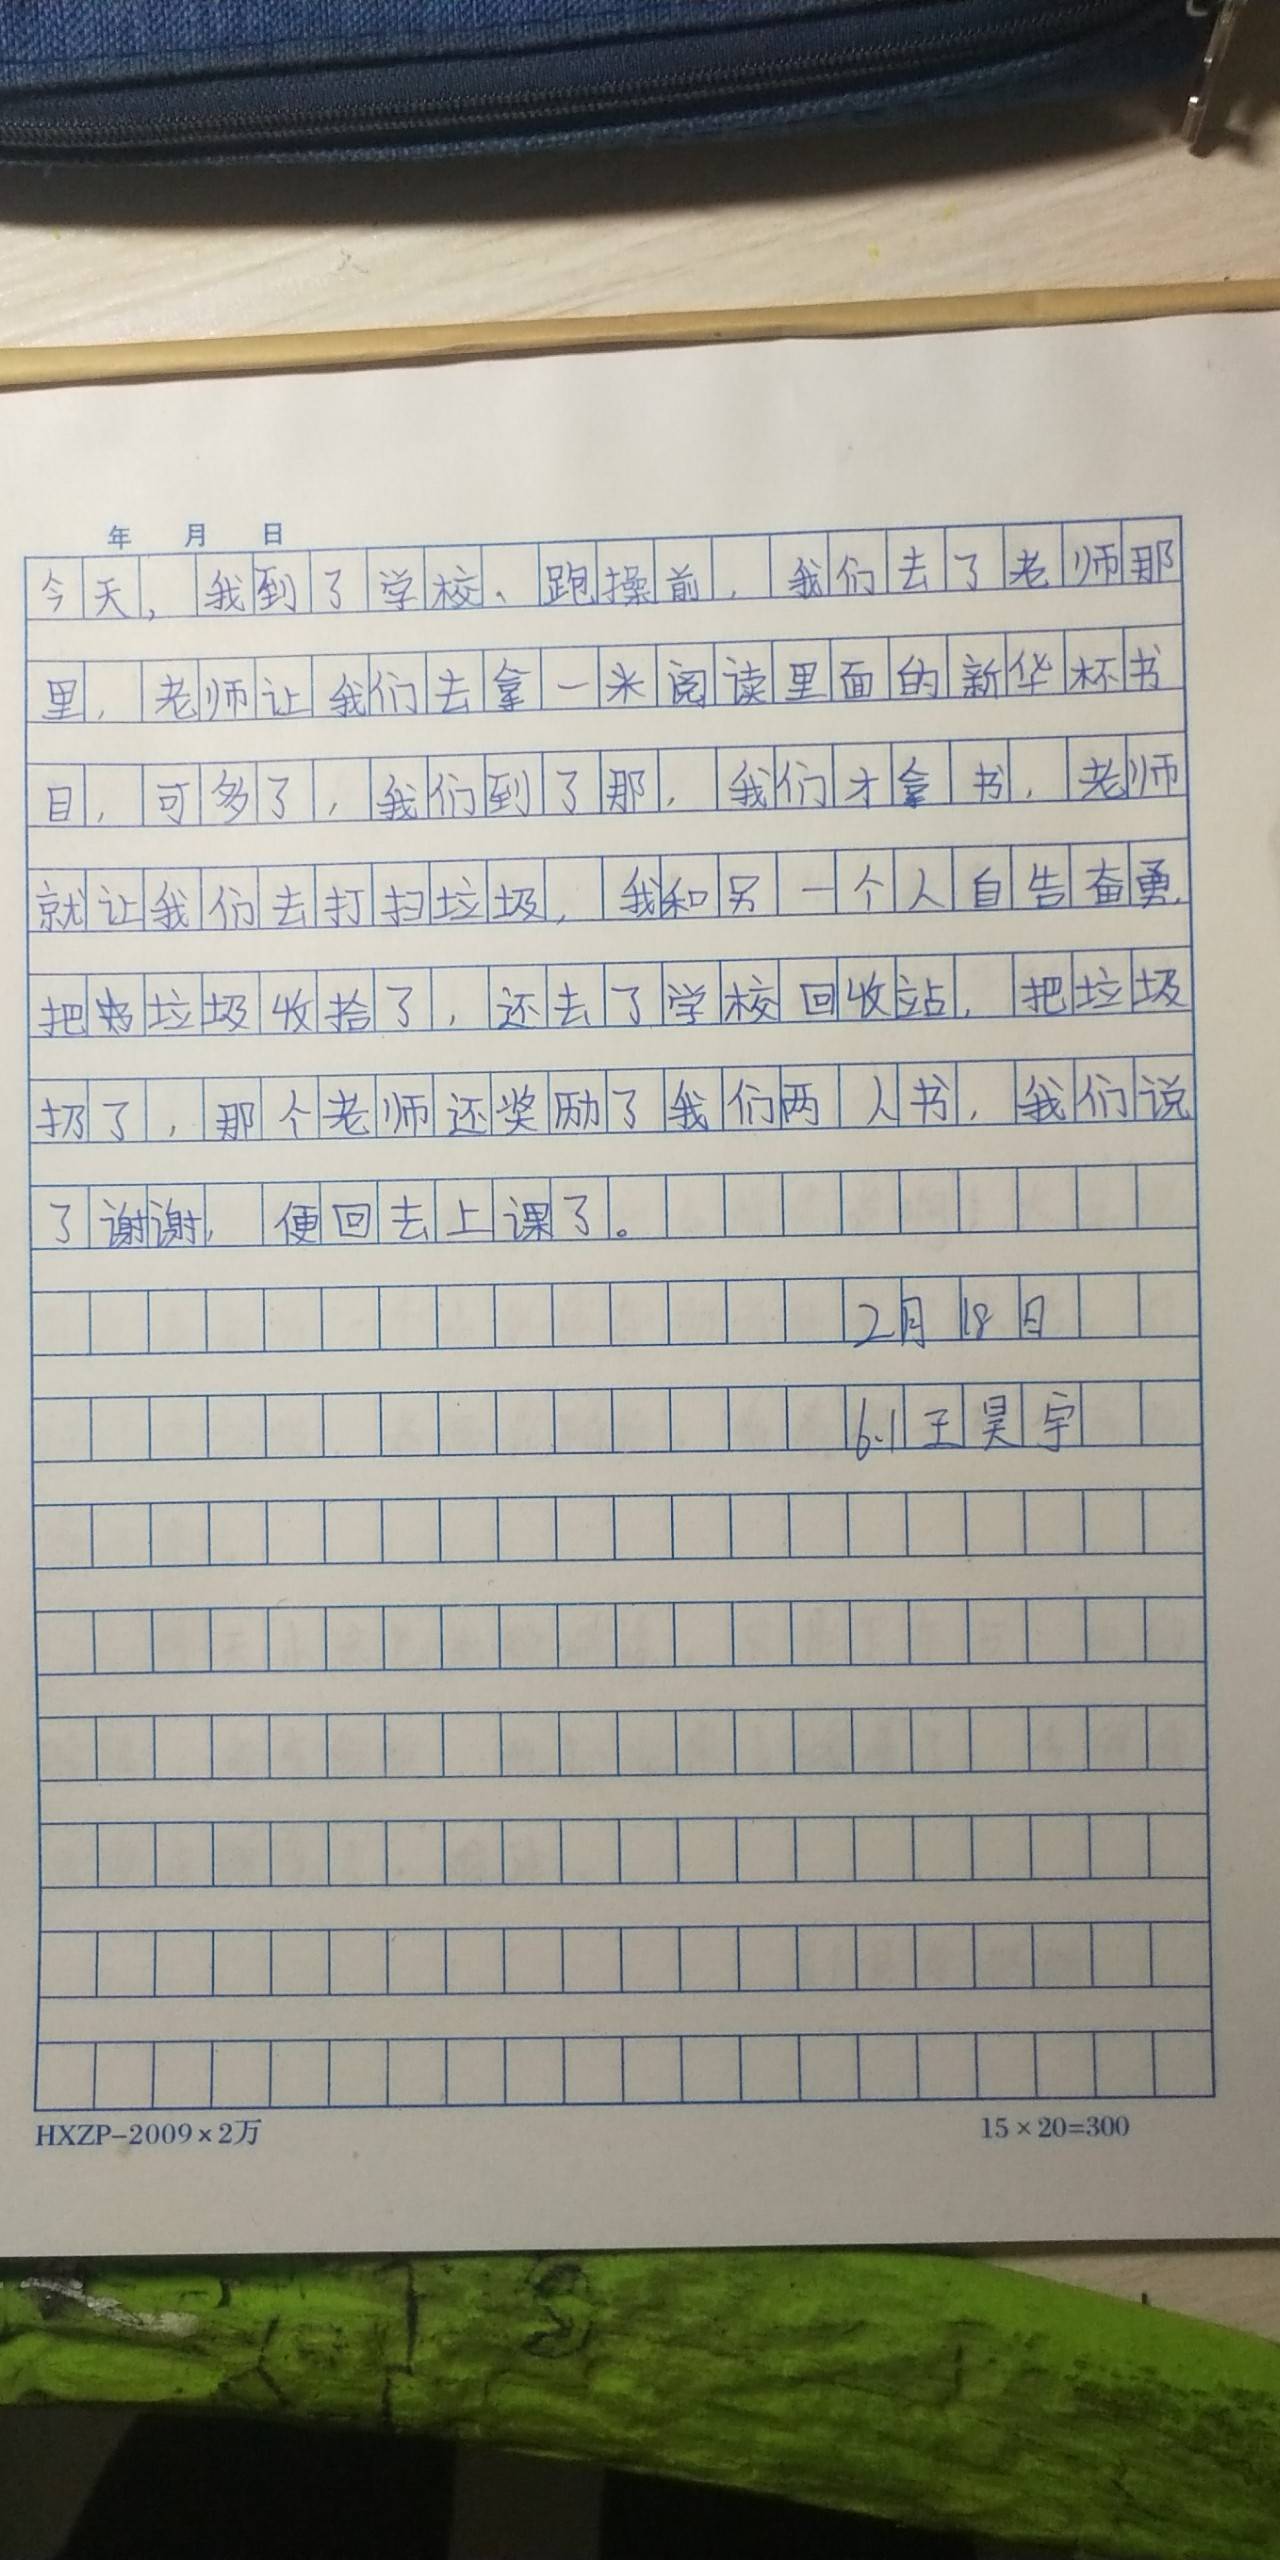 年 月 日
今天，我到了学校、跑操前，我们去了老师那
里，老师让我们去拿一米阅读里面的新华杯书
目，可多了，我们到了那，我们才拿书，老师
就让我们去打扫垃圾，我和另一个人自告奋勇，
把垃圾收拾了，还去了学校回收站，把垃圾
扔了，那个老师还奖励了我们两人书，我们说
了谢谢，便回去上课了。
2月18日
6.1王昊宇
HXZP-2009×2万 15×20=300